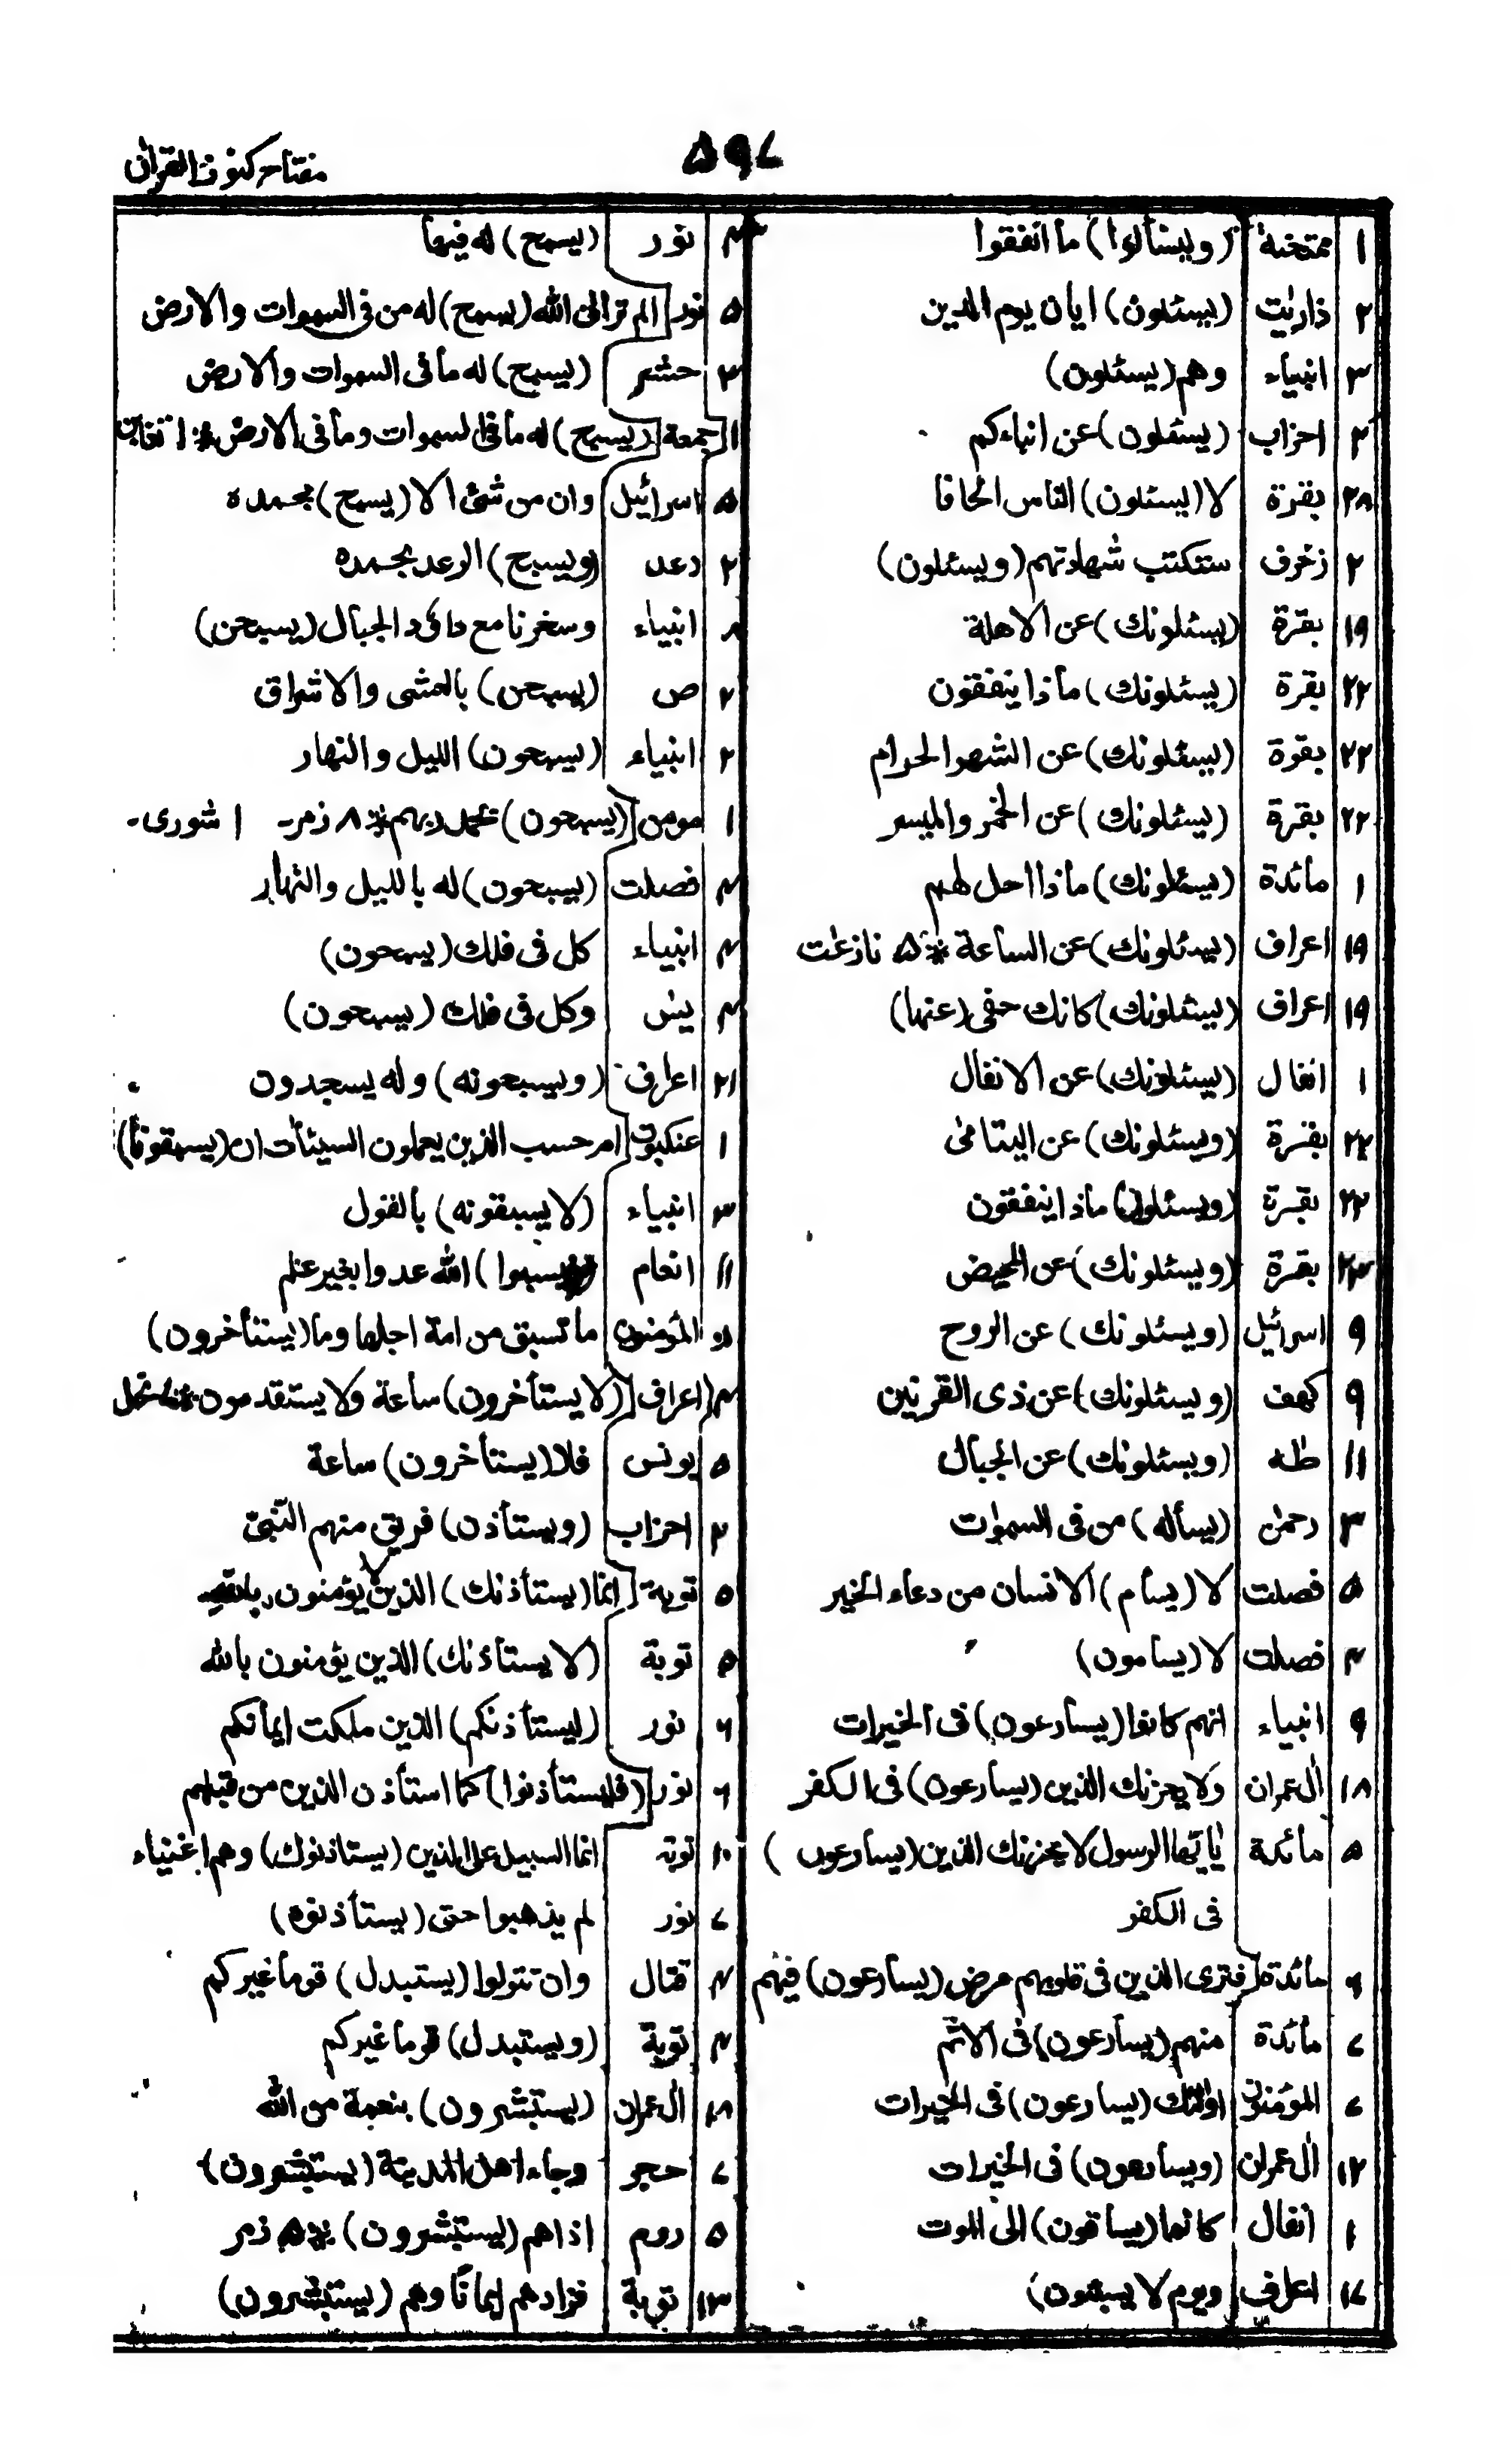 مفتاح كنوز القرآن
۵۹۷
۱ ممتحنة (ويسألوا) ما انفقوا
۲ ذاريٰت (يسئلون) ايان يوم الدين
۳ انبياء وهم (يسئلون)
۲ احزاب (يسئلون) عن انباءكم
۳۸ بقرة لا (يسئلون) الناس الحافا
۲ زخرف ستكتب شهادتهم (ويسئلون)
۱۹ بقرة (يسئلونك) عن الاهلة
۲۲ بقرة (يسئلونك) ماذا ينفقون
۲۲ بقرة (يسئلونك) عن الشهر الحرام
۲۲ بقرة (يسئلونك) عن الخمر والميسر
۱ مائدة (يسئلونك) ماذا احل لهم
۱۹ اعراف (يسئلونك) عن الساعة * ۵ نازعٰت
۱۹ اعراف (يسئلونك) كانك حفى (عنها)
۱ انفال (يسئلونك) عن الانفال
۲۲ بقرة (ويسئلونك) عن اليتامىٰ
۲۲ بقرة (ويسئلونك) ماذا ينفقون
۲۳ بقرة (ويسئلونك) عن المحيض
۹ اسرائيل (ويسئلونك) عن الروح
۹ كهف (ويسئلونك) عن ذى القرنين
۱۱ طه (ويسئلونك) عن الجبال
۳ رحمٰن (يسأله) من فى السموات
۵ فصلت لا (يسأم) الانسان من دعاء الخير
۴ فصلت لا (يسأمون)
۹ انبياء انهم كانوا (يسارعون) فى الخيرات
۱۸ اٰل عمران ولا يحزنك الذين (يسارعون) فى الكفر
۵ مائدة يٰايها الرسول لا يحزنك الذين (يسارعون)
فى الكفر
۶ مائدة فترى الذين فى قلوبهم مرض (يسارعون) فيهم
۷ مائدة منهم (يسارعون) فى الاثم
۷ المؤمنون اولٰئك (يسارعون) فى الخيرات
۱۲ اٰل عمران (ويسارعون) فى الخيرات
۱ انفال كانما (يساقون) الى الموت
۱۷ اعراف ويوم لا يسبتون)
۴ نور (يسبح) له فيها
۵ نور الم تر الى الله (يسبح) له من فى السموات والارض
۳ حشر (يسبح) له ما فى السموات والارض
۱ جمعة (يسبح) له ما فى السموات وما فى الارض * ۱ تغابن
۵ اسرائيل وان من شئ الا (يسبح) بحمده
۲ رعد (ويسبح) الرعد بحمده
۸ انبياء وسخرنا مع داؤد الجبال (يسبحن)
۲ ص (يسبحن) بالعشى والاشراق
۲ انبياء (يسبحون) الليل والنهار
۱ مومن (يسبحون) بحمد ربهم * ۸ زمر - ۱ شورى -
۴ فصلت (يسبحون) له بالليل والنهار
۴ انبياء كل فى فلك (يسبحون)
۴ يس وكل فى فلك (يسبحون)
۲۱ اعراف (ويسبحونه) وله يسجدون
۱ عنكبوت ام حسب الذين يعملون السيئات ان (يسبقونا)
۳ انبياء (لا يسبقونه) بالقول
۱۱ انعام يسبوا) الله عدوا بغير علم
المؤمنون ما تسبق من امة اجلها وما (يستأخرون)
۴ اعراف (لا يستأخرون) ساعة ولا يستقدمون نحل
۵ يونس فلا (يستأخرون) ساعة
۲ احزاب (ويستأذن) فريق منهم النّبىّ
۵ توبة انما (يستأذنك) الذين لا يؤمنون بالله
۵ توبة (لا يستاذنك) الذين يؤمنون بالله
۶ نور (ليستأذنكم) الذين ملكت ايمانكم
۶ نور (فليستأذنوا) كما استأذن الذين من قبلهم
۱۰ توبة انما السبيل على الذين (يستاذنوك) وهم اغنياء
۷ نور لم يذهبوا حتى (يستأذنوه)
۴ قتال وان تتولوا (يستبدل) قوما غيركم
۴ توبة (ويستبدل) قوما غيركم
۱۸ اٰل عمران (يستبشرون) بنعمة من الله
۷ حجر وجاء اهل المدينة (يستبشرون)
۵ روم اذا هم (يستبشرون) * ۵ زمر
۱۳ توبة فزادهم ايمانًا وهم (يستبشرون)